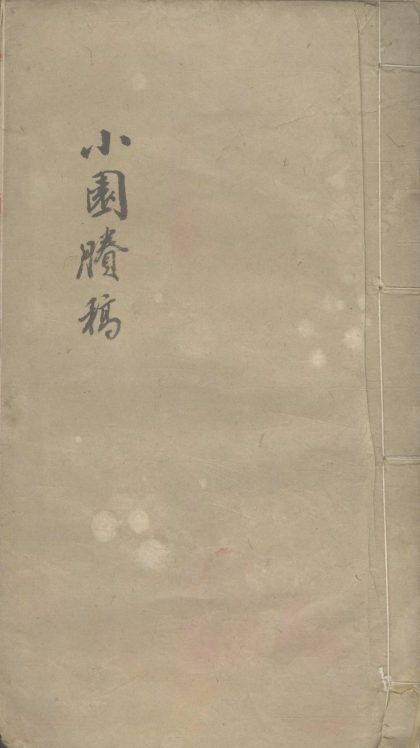 小園賸稿